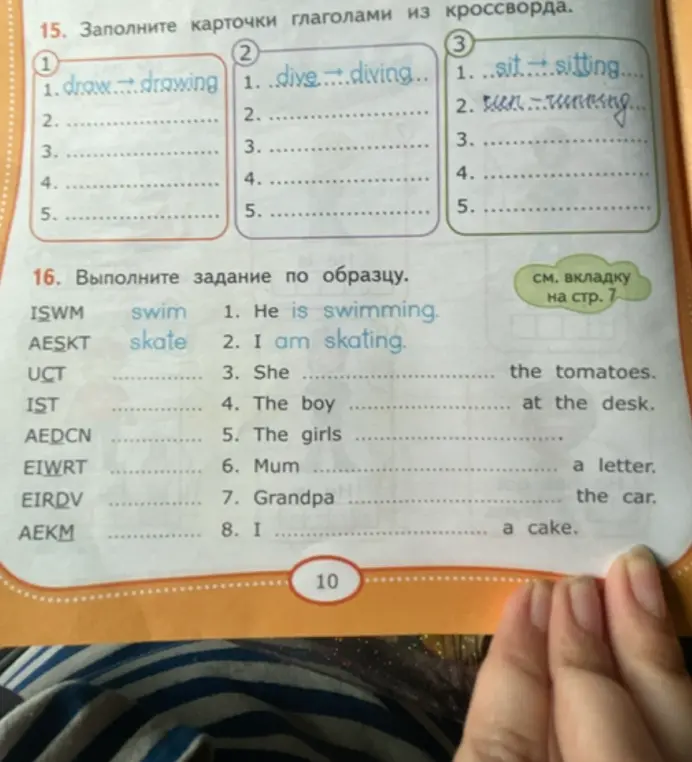 15. Заполните карточки глаголами из кроссворда.
1
1. draw → drawing
2.
3.
4.
5.
2
1. dive → diving
2.
3.
4.
5.
3
1. sit → sitting
2. run - running
3.
4.
5.
16. Выполните задание по образцу.
см. вкладку
на стр. 7
ISWM swim 1. He is swimming.
AESKT skate 2. I am skating.
UCT 3. She the tomatoes.
IST 4. The boy at the desk.
AEDCN 5. The girls .
EIWRT 6. Mum a letter.
EIRDV 7. Grandpa the car.
AEKM 8. I a cake.
10